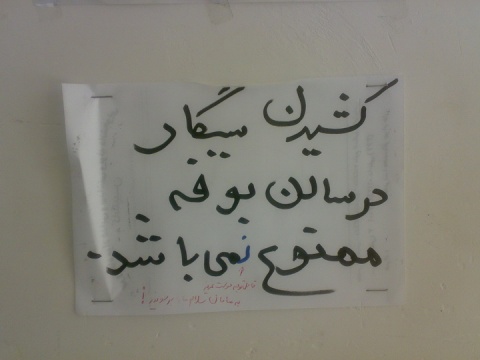 کشیدن سیگار
در سالن بوفه
ممنوع نمی باشد.